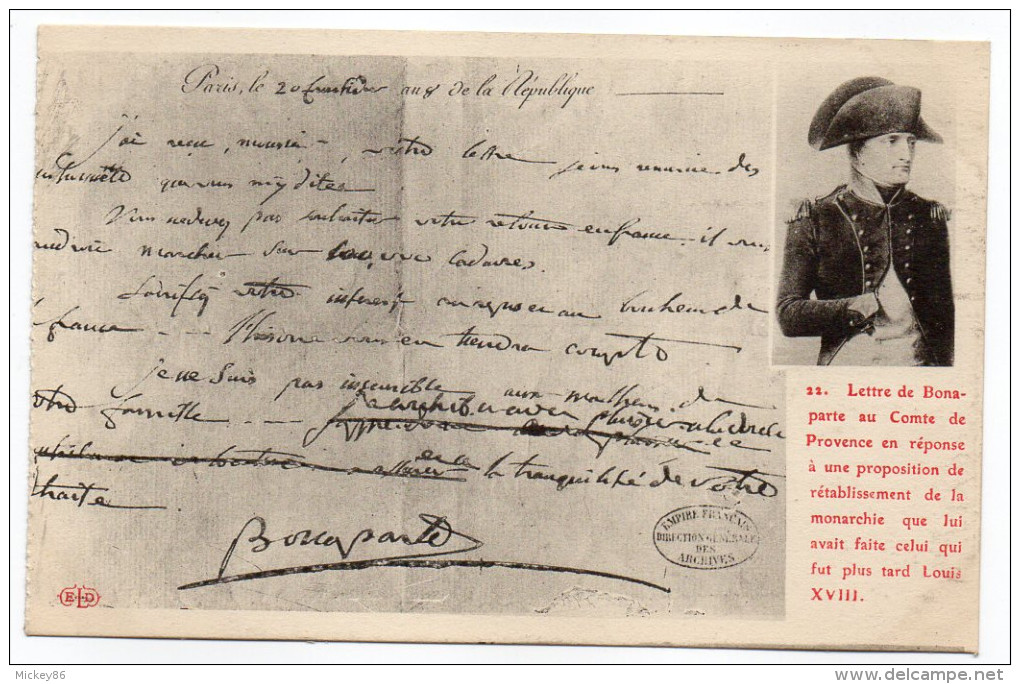 Paris, le 20 fructidor an 8 de la République
j'ai reçu, monsieur, votre lettre je vous remercie des
honnêtetés que vous m'y dites
Vous ne devez pas souhaiter votre retour en france. il vous
faudroit marcher sur 100,000 cadavres.
Sacrifiez votre interest au repos et au bonheur de
la france L'histoire vous en tiendra compte
je ne suis pas insensible aux malheurs de
votre famille
et a la tranquilité de votre
retraite.
Bonaparte
EMPIRE FRANÇAIS
DIRECTION GÉNÉRALE
DES
ARCHIVES
ELD
22. Lettre de Bona-
parte au Comte de
Provence en réponse
à une proposition de
rétablissement de la
monarchie que lui
avait faite celui qui
fut plus tard Louis
XVIII.
Mickey86
www.delcampe.net